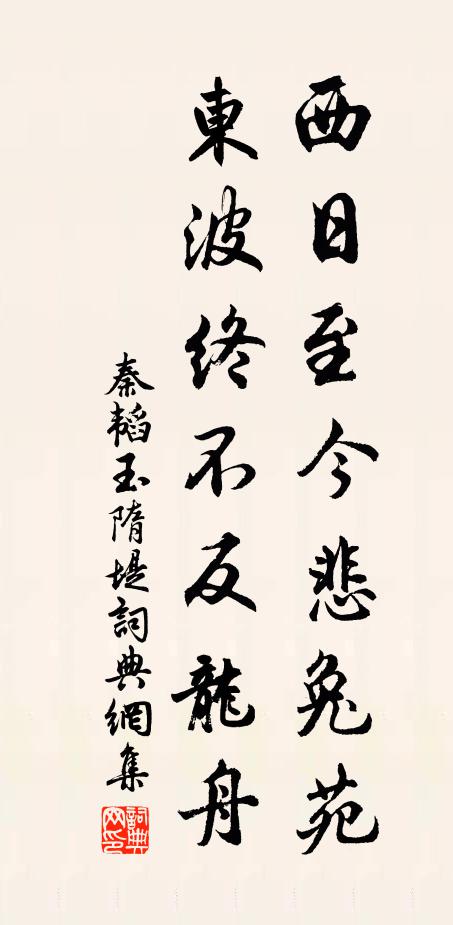 西日至今悲兔苑
東波終不反龍舟
秦韜玉隋堤詞典網集
詞典网印